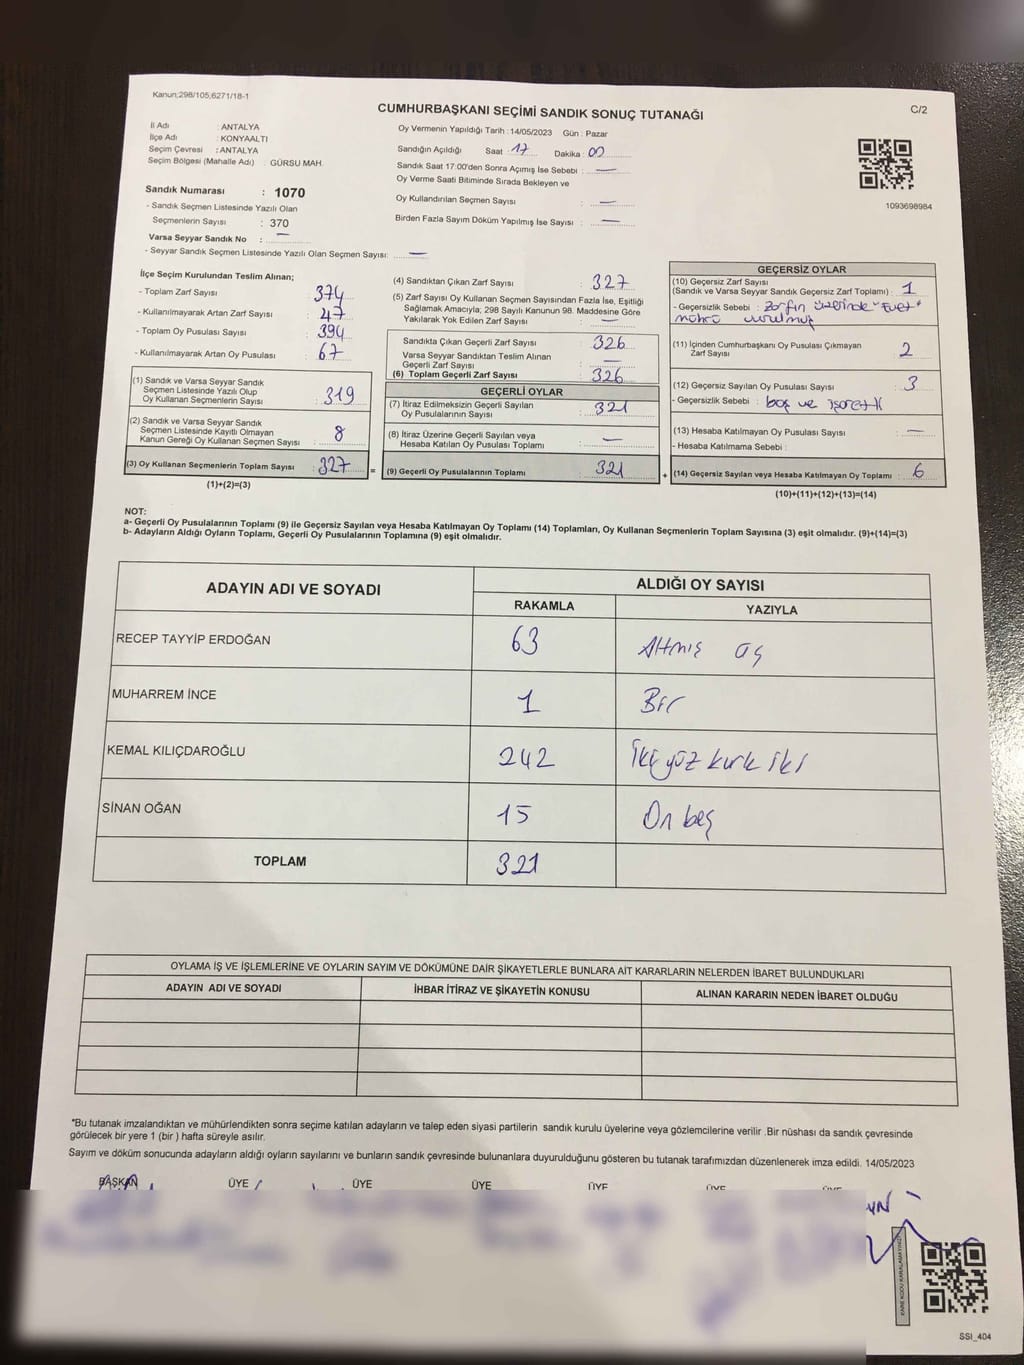 Kanun;298/105,6271/18-1
CUMHURBAŞKANI SEÇİMİ SANDIK SONUÇ TUTANAĞI
C/2
İl Adı : ANTALYA
İlçe Adı : KONYAALTI
Seçim Çevresi : ANTALYA
Seçim Bölgesi (Mahalle Adı) : GÜRSU MAH.
Sandık Numarası : 1070
- Sandık Seçmen Listesinde Yazılı Olan
Seçmenlerin Sayısı : 370
Varsa Seyyar Sandık No : —
- Seyyar Sandık Seçmen Listesinde Yazılı Olan Seçmen Sayısı: —
Oy Vermenin Yapıldığı Tarih : 14/05/2023 Gün : Pazar
Sandığın Açıldığı Saat : 17 Dakika : 00
Sandık Saat 17:00'den Sonra Açımış İse Sebebi : —
Oy Verme Saati Bitiminde Sırada Bekleyen ve
Oy Kullandırılan Seçmen Sayısı : —
Birden Fazla Sayım Döküm Yapılmış İse Sayısı : —
1093698984
İlçe Seçim Kurulundan Teslim Alınan;
- Toplam Zarf Sayısı : 374
- Kullanılmayarak Artan Zarf Sayısı : 47
- Toplam Oy Pusulası Sayısı : 394
- Kullanılmayarak Artan Oy Pusulası : 67
(1) Sandık ve Varsa Seyyar Sandık
Seçmen Listesinde Yazılı Olup
Oy Kullanan Seçmenlerin Sayısı : 319
(2) Sandık ve Varsa Seyyar Sandık
Seçmen Listesinde Kayıtlı Olmayan
Kanun Gereği Oy Kullanan Seçmen Sayısı : 8
(3) Oy Kullanan Seçmenlerin Toplam Sayısı : 327 =
(1)+(2)=(3)
(4) Sandıktan Çıkan Zarf Sayısı : 327
(5) Zarf Sayısı Oy Kullanan Seçmen Sayısından Fazla İse, Eşitliği
Sağlamak Amacıyla; 298 Sayılı Kanunun 98. Maddesine Göre
Yakılarak Yok Edilen Zarf Sayısı : —
Sandıkta Çıkan Geçerli Zarf Sayısı : 326
Varsa Seyyar Sandıktan Teslim Alınan
Geçerli Zarf Sayısı : —
(6) Toplam Geçerli Zarf Sayısı : 326
GEÇERLİ OYLAR
(7) İtiraz Edilmeksizin Geçerli Sayılan
Oy Pusulalarının Sayısı : 321
(8) İtiraz Üzerine Geçerli Sayılan veya
Hesaba Katılan Oy Pusulası Toplamı : —
(9) Geçerli Oy Pusulalarının Toplamı : 321 +
GEÇERSİZ OYLAR
(10) Geçersiz Zarf Sayısı
(Sandık ve Varsa Seyyar Sandık Geçersiz Zarf Toplamı) : 1
- Geçersizlik Sebebi : Zarfın üzerinde "Evet"
mührü vurulmuş
(11) İçinden Cumhurbaşkanı Oy Pusulası Çıkmayan
Zarf Sayısı : 2
(12) Geçersiz Sayılan Oy Pusulası Sayısı : 3
- Geçersizlik Sebebi : boş ve işaretli
(13) Hesaba Katılmayan Oy Pusulası Sayısı : —
- Hesaba Katılmama Sebebi :
(14) Geçersiz Sayılan veya Hesaba Katılmayan Oy Toplamı : 6
(10)+(11)+(12)+(13)=(14)
NOT:
a- Geçerli Oy Pusulalarının Toplamı (9) ile Geçersiz Sayılan veya Hesaba Katılmayan Oy Toplamı (14) Toplamları, Oy Kullanan Seçmenlerin Toplam Sayısına (3) eşit olmalıdır. (9)+(14)=(3)
b- Adayların Aldığı Oyların Toplamı, Geçerli Oy Pusulalarının Toplamına (9) eşit olmalıdır.
ADAYIN ADI VE SOYADI ALDIĞI OY SAYISI
RAKAMLA YAZIYLA
RECEP TAYYİP ERDOĞAN 63 Altmış üç
MUHARREM İNCE 1 Bir
KEMAL KILIÇDAROĞLU 242 İki yüz kırk iki
SİNAN OĞAN 15 On beş
TOPLAM 321
OYLAMA İŞ VE İŞLEMLERİNE VE OYLARIN SAYIM VE DÖKÜMÜNE DAİR ŞİKAYETLERLE BUNLARA AİT KARARLARIN NELERDEN İBARET BULUNDUKLARI
ADAYIN ADI VE SOYADI İHBAR İTİRAZ VE ŞİKAYETİN KONUSU ALINAN KARARIN NEDEN İBARET OLDUĞU
*Bu tutanak imzalandıktan ve mühürlendikten sonra seçime katılan adayların ve talep eden siyasi partilerin sandık kurulu üyelerine veya gözlemcilerine verilir .Bir nüshası da sandık çevresinde
görülecek bir yere 1 (bir ) hafta süreyle asılır.
Sayım ve döküm sonucunda adayların aldığı oyların sayılarını ve bunların sandık çevresinde bulunanlara duyurulduğunu gösteren bu tutanak tarafımızdan düzenlenerek imza edildi. 14/05/2023
BAŞKAN ÜYE ÜYE ÜYE ÜYE ÜYE
SSI_404